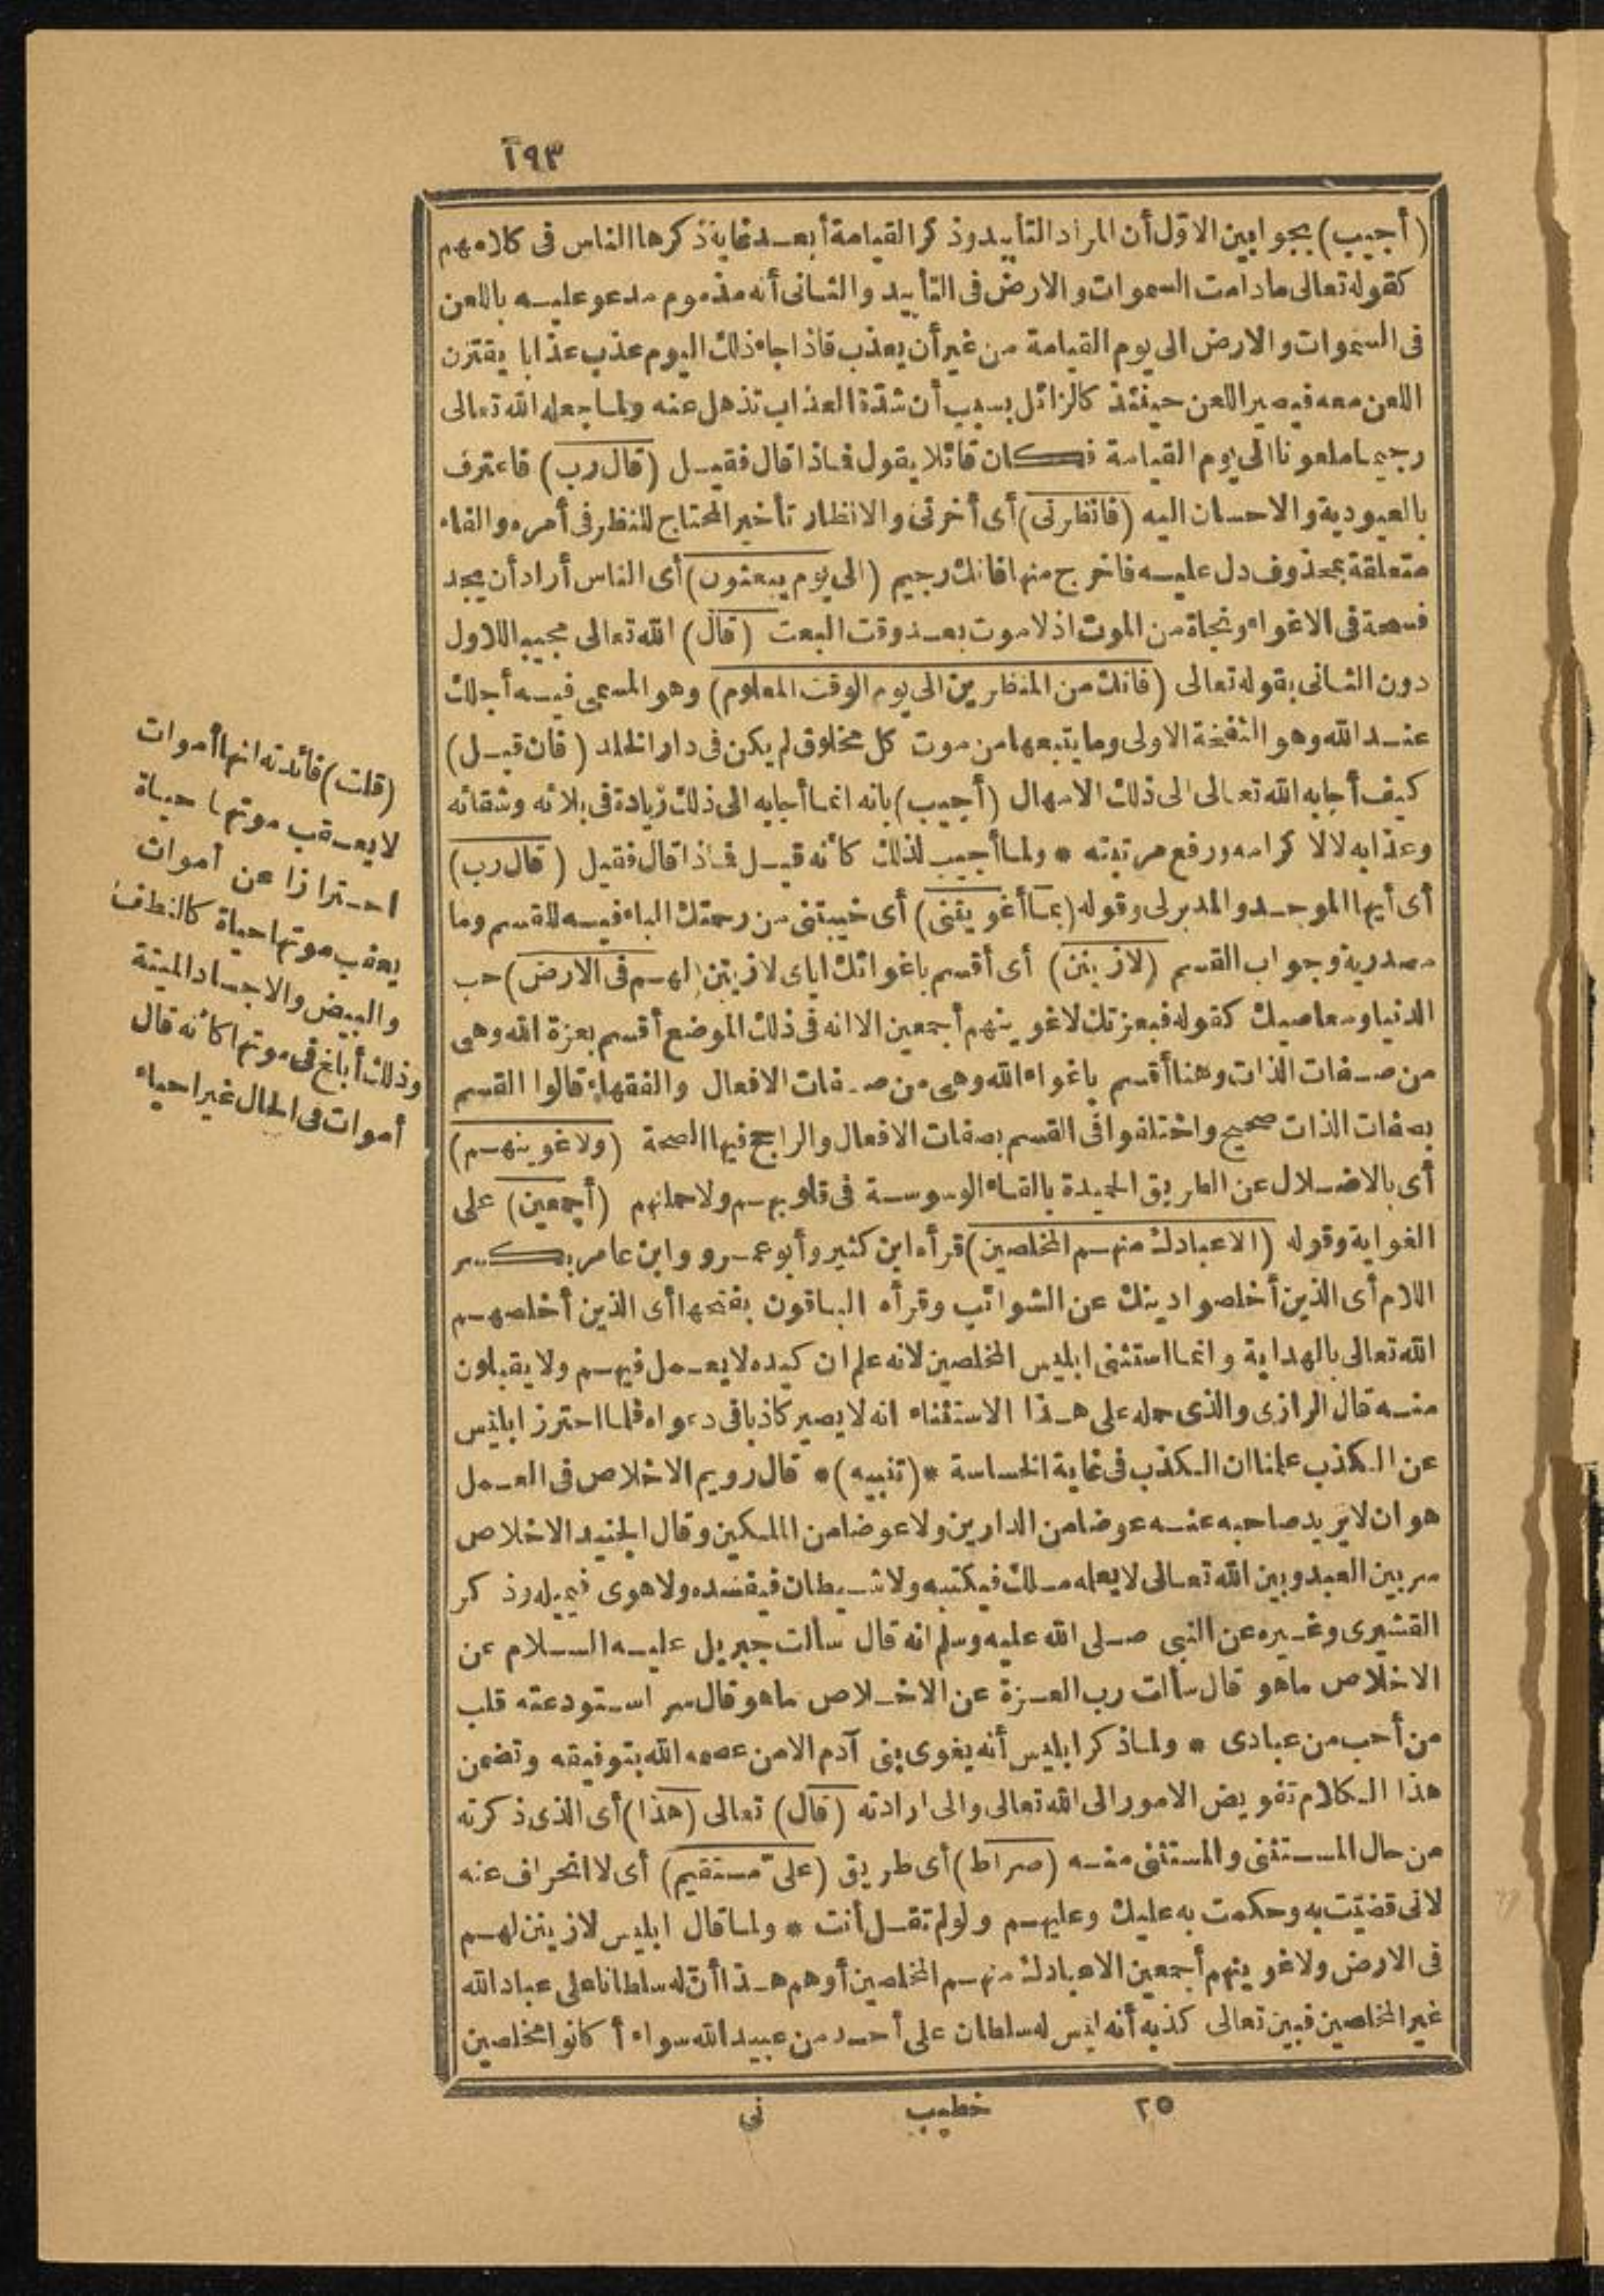 ١٩٣
(أجيب) بجوابين الاوّل أن المراد التأبيد وذكر القيامة أبعد غاية ذكرها الناس فى كلامهم
كقوله تعالى مادامت السموات والارض فى التأبيد والثانى أنه مذموم مدعو عليه باللعن
فى السموات والارض الى يوم القيامة من غير أن يعذب فاذا جاء ذلك اليوم عذب عذابا يقترن
اللعن معه فيصير اللعن حينئذ كالزائل بسبب أن شدّة العذاب تذهل عنه ولما جعله الله تعالى
رجيما ملعونا الى يوم القيامة فكان قائلا يقول فماذا قال فقيل (قال رب) فاعترف
بالعبودية والاحسان اليه (فانظرنى) أى أخرنى والانظار تأخير المحتاج للنظر فى أمره والفاء
متعلقة بمحذوف دل عليه فاخرج منها فانك رجيم (الى يوم يبعثون) أى الناس أراد أن يجد
فسحة فى الاغواء ونجاة من الموت اذ لاموت بعد وقت البعث (قال) الله تعالى مجيبا للاول
دون الثانى بقوله تعالى (فانك من المنظرين الى يوم الوقت المعلوم) وهو المسمى فيه أجلك
عند الله وهو النفخة الاولى وما يتبعها من موت كل مخلوق لم يكن فى دار الخلد (فان قيل)
كيف أجابه الله تعالى الى ذلك الامهال (أجيب) بانه انما أجابه الى ذلك زيادة فى بلائه وشقائه
وعذابه لا لاكرامه ورفع مرتبته * ولما أجيب لذلك كأنه قيل فماذا قال فقيل (قال رب)
أى أيها الموجد والمدبر لى وقوله (بما أغويتنى) أى خيبتنى من رحمتك الباء فيه للقسم وما
مصدرية وجواب القسم (لازينن) أى أقسم باغوائك اياى لازينن (لهم فى الارض) حب
الدنيا ومعاصيك كقوله فبعزتك لاغوينهم أجمعين الا انه فى ذلك الموضع أقسم بعزة الله وهى
من صفات الذات وهنا أقسم باغواء الله وهى من صفات الافعال والفقهاء قالوا القسم
بصفات الذات صحيح واختلفوا فى القسم بصفات الافعال والراجح فيها الصحة (ولاغوينهم)
أى بالاضلال عن الطريق الحميدة بالقاء الوسوسة فى قلوبهم ولاحملنهم (أجمعين) على
الغواية وقوله (الا عبادك منهم المخلصين) قرأه ابن كثير وأبو عمرو وابن عامر بكسر
اللام أى الذين أخلصوا دينك عن الشوائب وقرأه الباقون بفتحها أى الذين أخلصهم
الله تعالى بالهداية وانما استثنى ابليس المخلصين لانه علم ان كيده لا يعمل فيهم ولا يقبلون
منه قال الرازى والذى حمله على هذا الاستثناء انه لا يصير كاذبا فى دعواه فلما احترز ابليس
عن الكذب علمنا ان الكذب فى غاية الخساسة *(تنبيه)* قال رويم الاخلاص فى العمل
هو ان لا يريد صاحبه عنه عوضا من الدارين ولا عوضا من الملكين وقال الجنيد الاخلاص
سر بين العبد وبين الله تعالى لا يعلمه ملك فيكتبه ولا شيطان فيفسده ولا هوى فيميله وذكر
القشيرى وغيره عن النبى صلى الله عليه وسلم انه قال سألت جبريل عليه السلام عن
الاخلاص ماهو قال سألت رب العزة عن الاخلاص ماهو قال سر استودعته قلب
من أحب من عبادى * ولما ذكر ابليس أنه يغوى بنى آدم الا من عصمه الله بتوفيقه وتضمن
هذا الكلام تفويض الامور الى الله تعالى والى ارادته (قال) تعالى (هذا) أى الذى ذكرته
من حال المستثنى والمستثنى منه (صراط) أى طريق (علىّ مستقيم) أى لا انحراف عنه
لانى قضيت به وحكمت به عليك وعليهم ولو لم تقل أنت * ولما قال ابليس لازينن لهم
فى الارض ولاغوينهم أجمعين الا عبادك منهم المخلصين أوهم هذا أنّ له سلطانا على عباد الله
غير المخلصين فبين تعالى كذبه أنه ليس له سلطان على أحد من عبيد الله سواء أكانوا مخلصين
(قلت) فائدته انها أموات
لا يعقب موتها حياة
احترازا عن أموات
يعقب موتها حياة كالنطف
والبيض والاجساد الميتة
وذلك أبلغ فى موتها كأنه قال
أموات فى الحال غير احياء
٢٥ خطيب نى